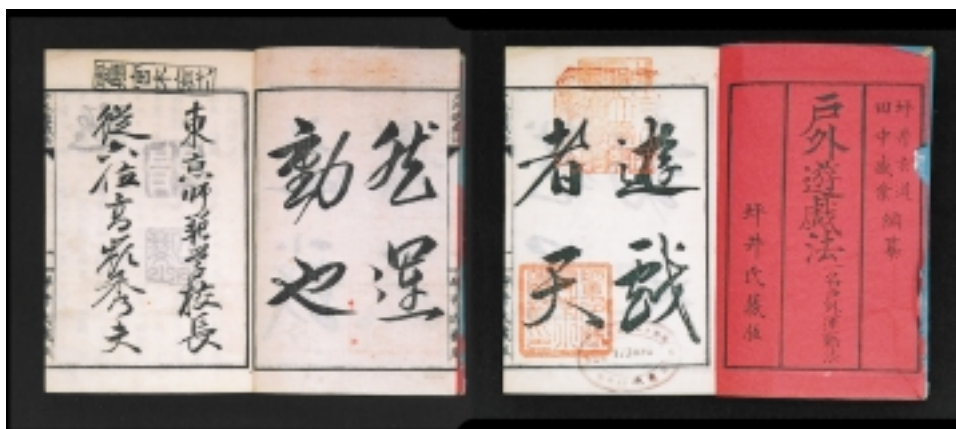 坪井玄道
田中盛業
編纂
戶外遊戯法 一名戶外運動法
坪井氏藏版
遊戯
者天
然運
動也
東京師範學校長
從六位高嶺秀夫